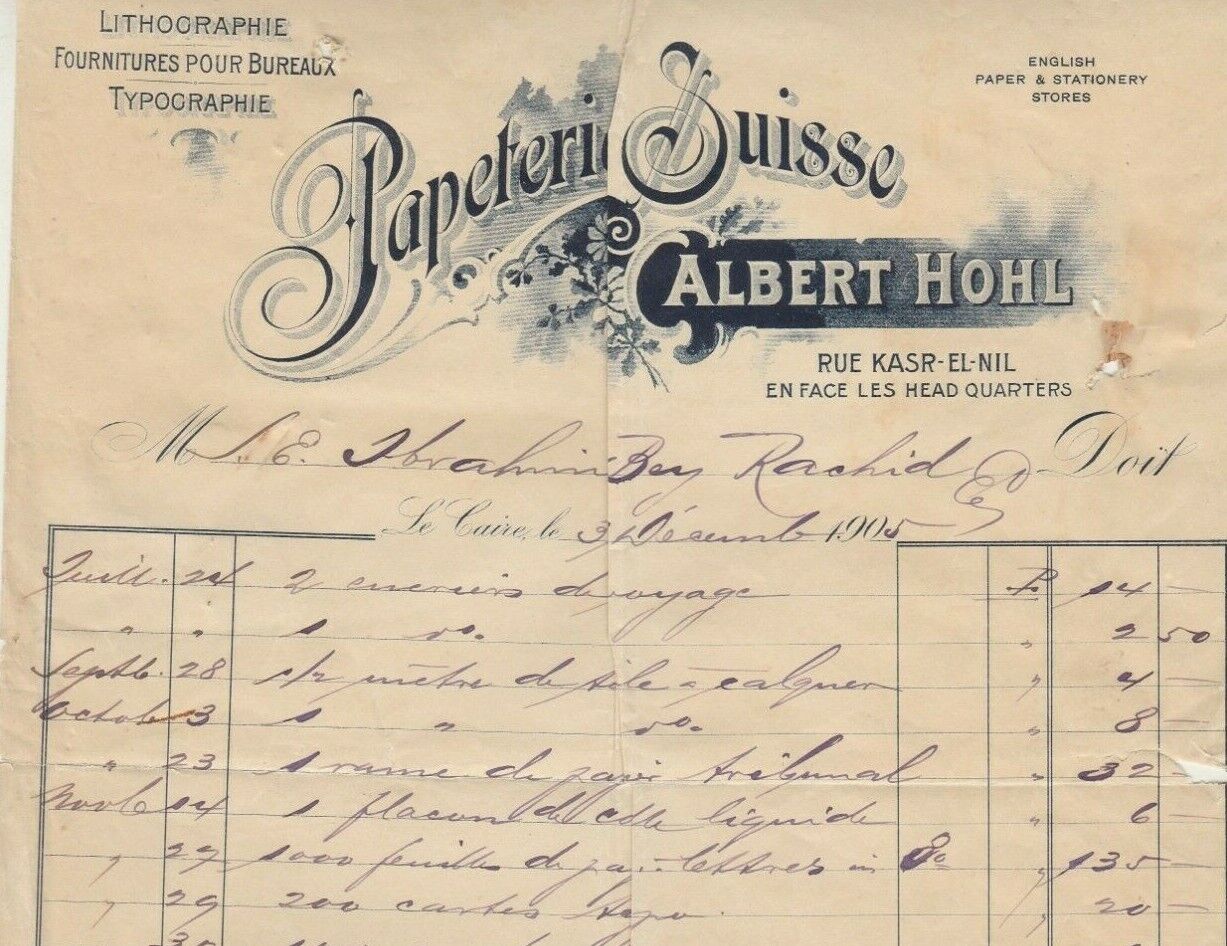 LITHOGRAPHIE
FOURNITURES POUR BUREAUX
TYPOGRAPHIE
ENGLISH
PAPER & STATIONERY
STORES
Papeterie Suisse
ALBERT HOHL
RUE KASR-EL-NIL
EN FACE LES HEAD QUARTERS
M S.E. Ibrahim Bey Rachid Doit
Le Caire, le 3 Décemb 1905
Juill. 24 2 encriers de voyage P. 14 —
" " 1 do. " 2 50
Septb. 28 1/2 mètre de tile à calquer " 4 —
Octob 3 1 " do. " 8 —
" 23 1 rame de papier tribunal " 32 —
Novb 14 1 flacon de colle liquide " 6 —
" 27 1000 feuilles de pap. lettres in 8o " 135 —
" 29 200 cartes " 20 —
30